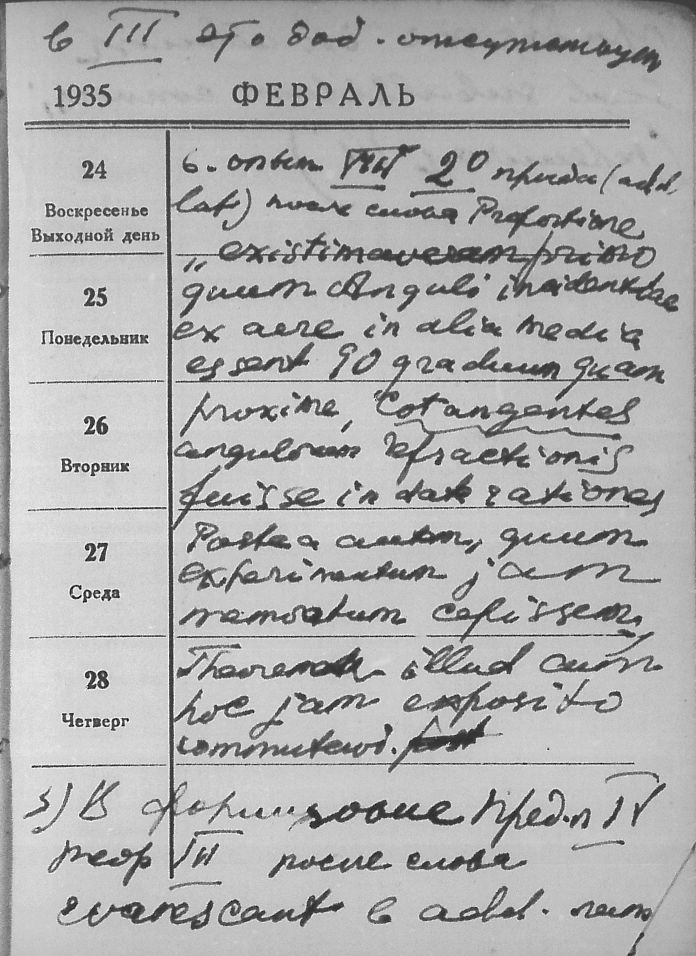 в III это доб. отсутствует
1935 ФЕВРАЛЬ
24
Воскресенье
Выходной день
25
Понедельник
26
Вторник
27
Среда
28
Четверг
в. опыт VIII 20 (add.
lat) после слова Proportione
„existimaveram primo
quum Anguli incidentiae
ex aere in alia media
essent 90 graduum quam
proxime, Cotangentes
angulorum refractionis
fuisse in data rationes
Postea autem, quum
experimentum jam
memoratum cepissem,
Theorema illud cum
hoc jam exposito
commutavi.
3) В пред. IV
теор III после слова
evanescant в add. лат.